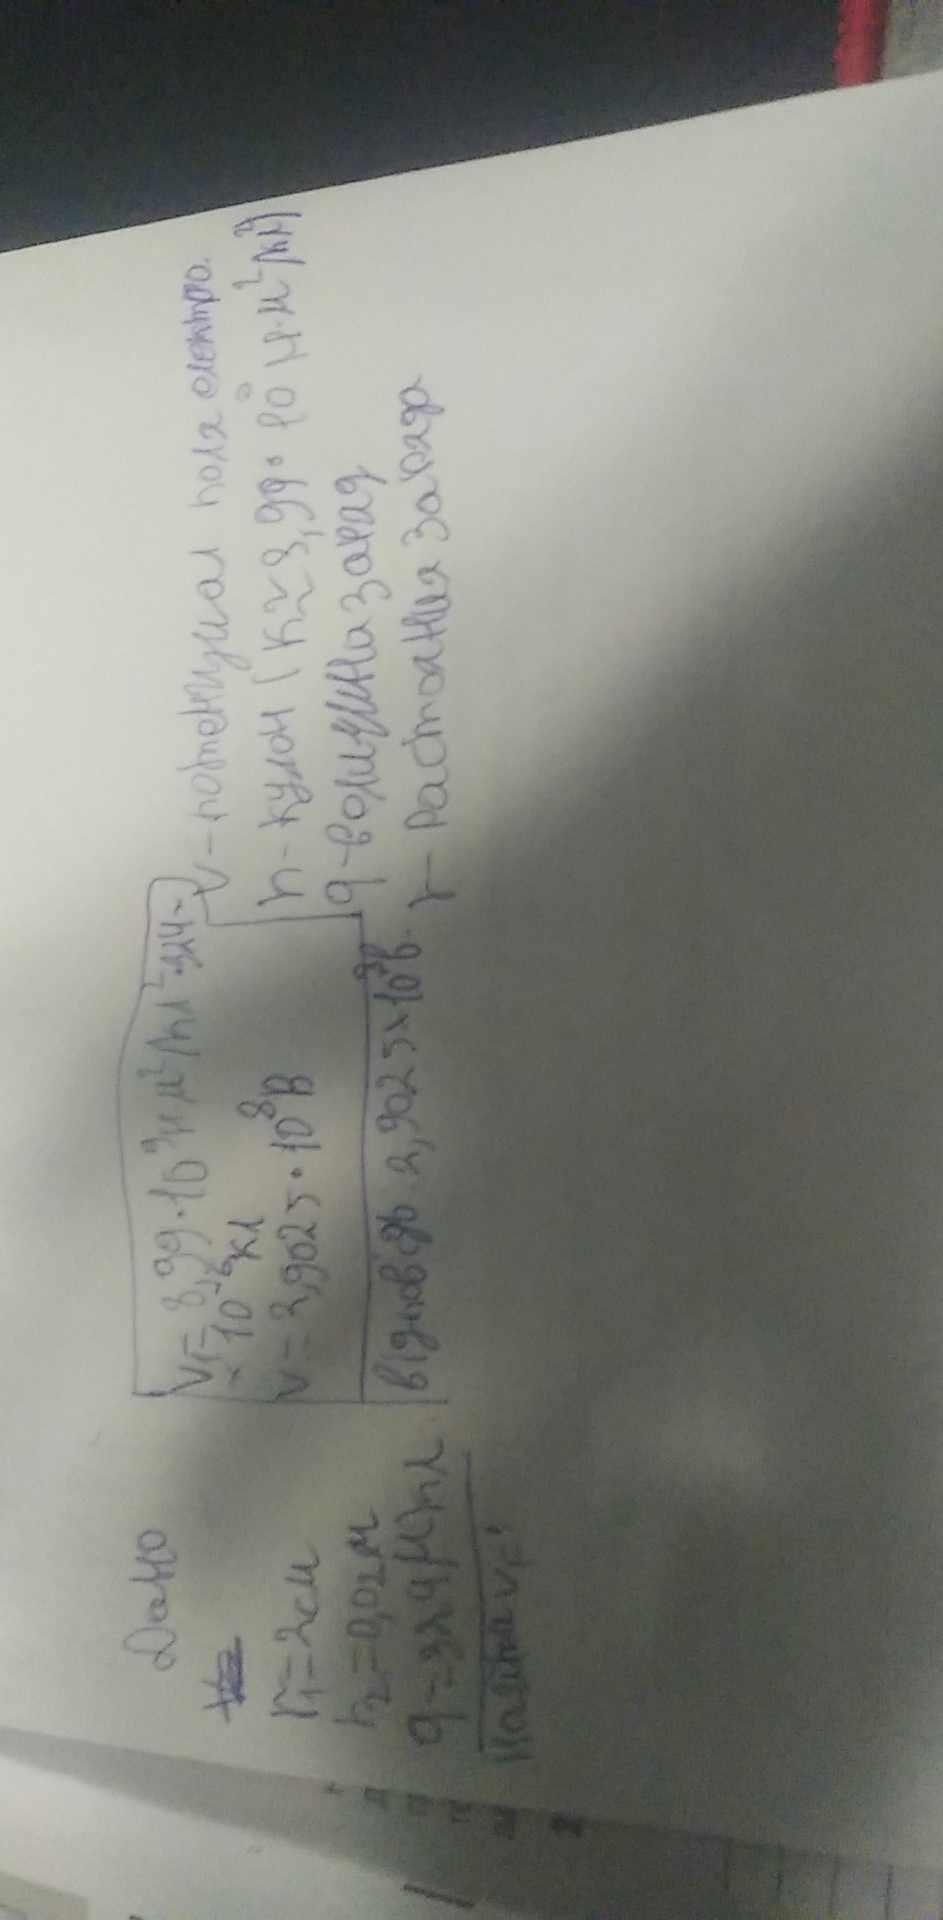 Дано
r₁=2см
r₂=0,02м
q=324 μкл
Найти V₁=
V₁=8,99·10⁹ н м²/кл²·324·
10⁻⁶ кл
V=2,9025·10⁸ В
відповідь 2,9025×10⁸ в.
V-потенциал поля електро.
k-кулон (k≈8,99·10⁹ Н·м²/кл²)
q-величина заряд
r-растояния заряда